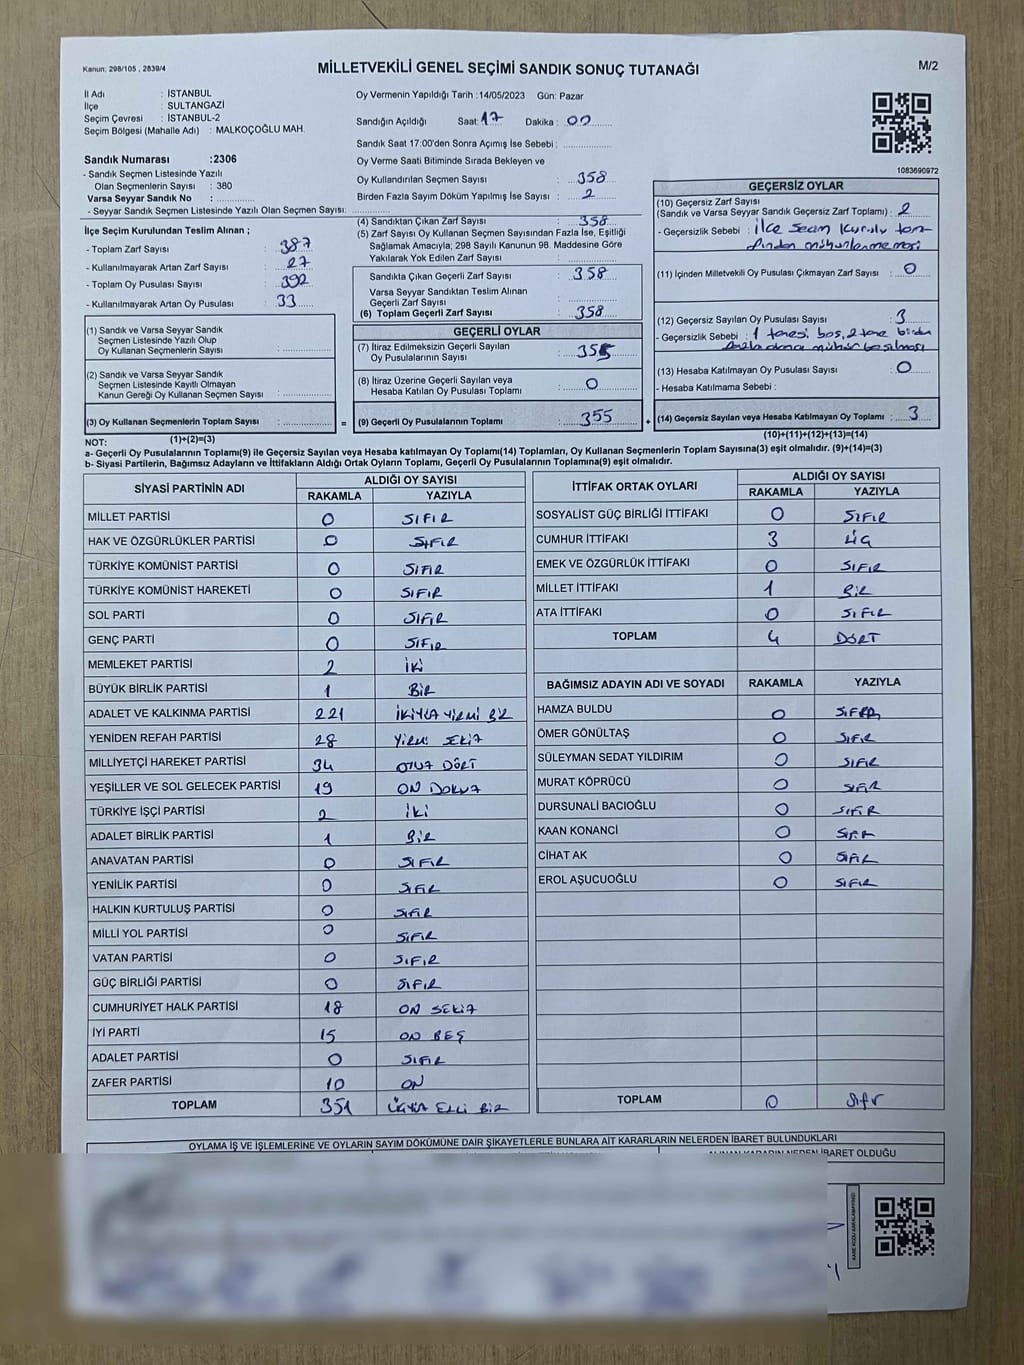 Kanun: 298/105 , 2839/4
MİLLETVEKİLİ GENEL SEÇİMİ SANDIK SONUÇ TUTANAĞI
M/2
İl Adı : İSTANBUL
İlçe : SULTANGAZİ
Seçim Çevresi : İSTANBUL-2
Seçim Bölgesi (Mahalle Adı) : MALKOÇOĞLU MAH.
Sandık Numarası :2306
- Sandık Seçmen Listesinde Yazılı
Olan Seçmenlerin Sayısı : 380
Varsa Seyyar Sandık No :
- Seyyar Sandık Seçmen Listesinde Yazılı Olan Seçmen Sayısı:
İlçe Seçim Kurulundan Teslim Alınan ;
- Toplam Zarf Sayısı : 387
- Kullanılmayarak Artan Zarf Sayısı : 27
- Toplam Oy Pusulası Sayısı : 392
- Kullanılmayarak Artan Oy Pusulası : 33
(1) Sandık ve Varsa Seyyar Sandık
Seçmen Listesinde Yazılı Olup
Oy Kullanan Seçmenlerin Sayısı :
(2) Sandık ve Varsa Seyyar Sandık
Seçmen Listesinde Kayıtlı Olmayan
Kanun Gereği Oy Kullanan Seçmen Sayısı :
(3) Oy Kullanan Seçmenlerin Toplam Sayısı :
(1)+(2)=(3)
Oy Vermenin Yapıldığı Tarih :14/05/2023 Gün: Pazar
Sandığın Açıldığı Saat: 17 Dakika : 00
Sandık Saat 17:00'den Sonra Açımış İse Sebebi :
Oy Verme Saati Bitiminde Sırada Bekleyen ve
Oy Kullandırılan Seçmen Sayısı : 358
Birden Fazla Sayım Döküm Yapılmış İse Sayısı : 2
(4) Sandıktan Çıkan Zarf Sayısı : 358
(5) Zarf Sayısı Oy Kullanan Seçmen Sayısından Fazla İse, Eşitliği
Sağlamak Amacıyla; 298 Sayılı Kanunun 98. Maddesine Göre
Yakılarak Yok Edilen Zarf Sayısı :
Sandıkta Çıkan Geçerli Zarf Sayısı : 358
Varsa Seyyar Sandıktan Teslim Alınan
Geçerli Zarf Sayısı :
(6) Toplam Geçerli Zarf Sayısı : 358
GEÇERLİ OYLAR
(7) İtiraz Edilmeksizin Geçerli Sayılan
Oy Pusulalarının Sayısı : 355
(8) İtiraz Üzerine Geçerli Sayılan veya
Hesaba Katılan Oy Pusulası Toplamı : 0
= (9) Geçerli Oy Pusulalarının Toplamı : 355
1083690972
GEÇERSİZ OYLAR
(10) Geçersiz Zarf Sayısı
(Sandık ve Varsa Seyyar Sandık Geçersiz Zarf Toplamı) : 2
- Geçersizlik Sebebi : İlçe Seçim Kurulu tara-
fından mühürlenmemesi
(11) İçinden Milletvekili Oy Pusulası Çıkmayan Zarf Sayısı : 0
(12) Geçersiz Sayılan Oy Pusulası Sayısı : 3
- Geçersizlik Sebebi : 1 tanesi boş, 2 tane birden
fazla alana mühür basılması
(13) Hesaba Katılmayan Oy Pusulası Sayısı : 0
- Hesaba Katılmama Sebebi :
+ (14) Geçersiz Sayılan veya Hesaba Katılmayan Oy Toplamı : 3
(10)+(11)+(12)+(13)=(14)
NOT:
a- Geçerli Oy Pusulasının Toplamı(9) ile Geçersiz Sayılan veya Hesaba katılmayan Oy Toplamı(14) Toplamları, Oy Kullanan Seçmenlerin Toplam Sayısına(3) eşit olmalıdır. (9)+(14)=(3)
b- Siyasi Partilerin, Bağımsız Adayların ve İttifakların Aldığı Ortak Oyların Toplamı, Geçerli Oy Pusulalarının Toplamına(9) eşit olmalıdır.
SİYASİ PARTİNİN ADI ALDIĞI OY SAYISI
RAKAMLA YAZIYLA
MİLLET PARTİSİ 0 SIFIR
HAK VE ÖZGÜRLÜKLER PARTİSİ 0 SIFIR
TÜRKİYE KOMÜNİST PARTİSİ 0 SIFIR
TÜRKİYE KOMÜNİST HAREKETİ 0 SIFIR
SOL PARTİ 0 SIFIR
GENÇ PARTİ 0 SIFIR
MEMLEKET PARTİSİ 2 İKİ
BÜYÜK BİRLİK PARTİSİ 1 BİR
ADALET VE KALKINMA PARTİSİ 221 İKİYÜZ YİRMİ BİR
YENİDEN REFAH PARTİSİ 28 YİRMİ SEKİZ
MİLLİYETÇİ HAREKET PARTİSİ 34 OTUZ DÖRT
YEŞİLLER VE SOL GELECEK PARTİSİ 19 ON DOKUZ
TÜRKİYE İŞÇİ PARTİSİ 2 İKİ
ADALET BİRLİK PARTİSİ 1 BİR
ANAVATAN PARTİSİ 0 SIFIR
YENİLİK PARTİSİ 0 SIFIR
HALKIN KURTULUŞ PARTİSİ 0 SIFIR
MİLLİ YOL PARTİSİ 0 SIFIR
VATAN PARTİSİ 0 SIFIR
GÜÇ BİRLİĞİ PARTİSİ 0 SIFIR
CUMHURİYET HALK PARTİSİ 18 ON SEKİZ
İYİ PARTİ 15 ON BEŞ
ADALET PARTİSİ 0 SIFIR
ZAFER PARTİSİ 10 ON
TOPLAM 351 ÜÇYÜZ ELLİ BİR
İTTİFAK ORTAK OYLARI ALDIĞI OY SAYISI
RAKAMLA YAZIYLA
SOSYALİST GÜÇ BİRLİĞİ İTTİFAKI 0 SIFIR
CUMHUR İTTİFAKI 3 ÜÇ
EMEK VE ÖZGÜRLÜK İTTİFAKI 0 SIFIR
MİLLET İTTİFAKI 1 BİR
ATA İTTİFAKI 0 SIFIR
TOPLAM 4 DÖRT
BAĞIMSIZ ADAYIN ADI VE SOYADI RAKAMLA YAZIYLA
HAMZA BULDU 0 SIFIR
ÖMER GÖNÜLTAŞ 0 SIFIR
SÜLEYMAN SEDAT YILDIRIM 0 SIFIR
MURAT KÖPRÜCÜ 0 SIFIR
DURSUNALİ BACIOĞLU 0 SIFIR
KAAN KONANCİ 0 SIFIR
CİHAT AK 0 SIFIR
EROL AŞUCUOĞLU 0 SIFIR
TOPLAM 0 Sıfır
OYLAMA İŞ VE İŞLEMLERİNE VE OYLARIN SAYIM DÖKÜMÜNE DAİR ŞİKAYETLERLE BUNLARA AİT KARARLARIN NELERDEN İBARET BULUNDUKLARI
ALINAN KARARIN NEDEN İBARET OLDUĞU